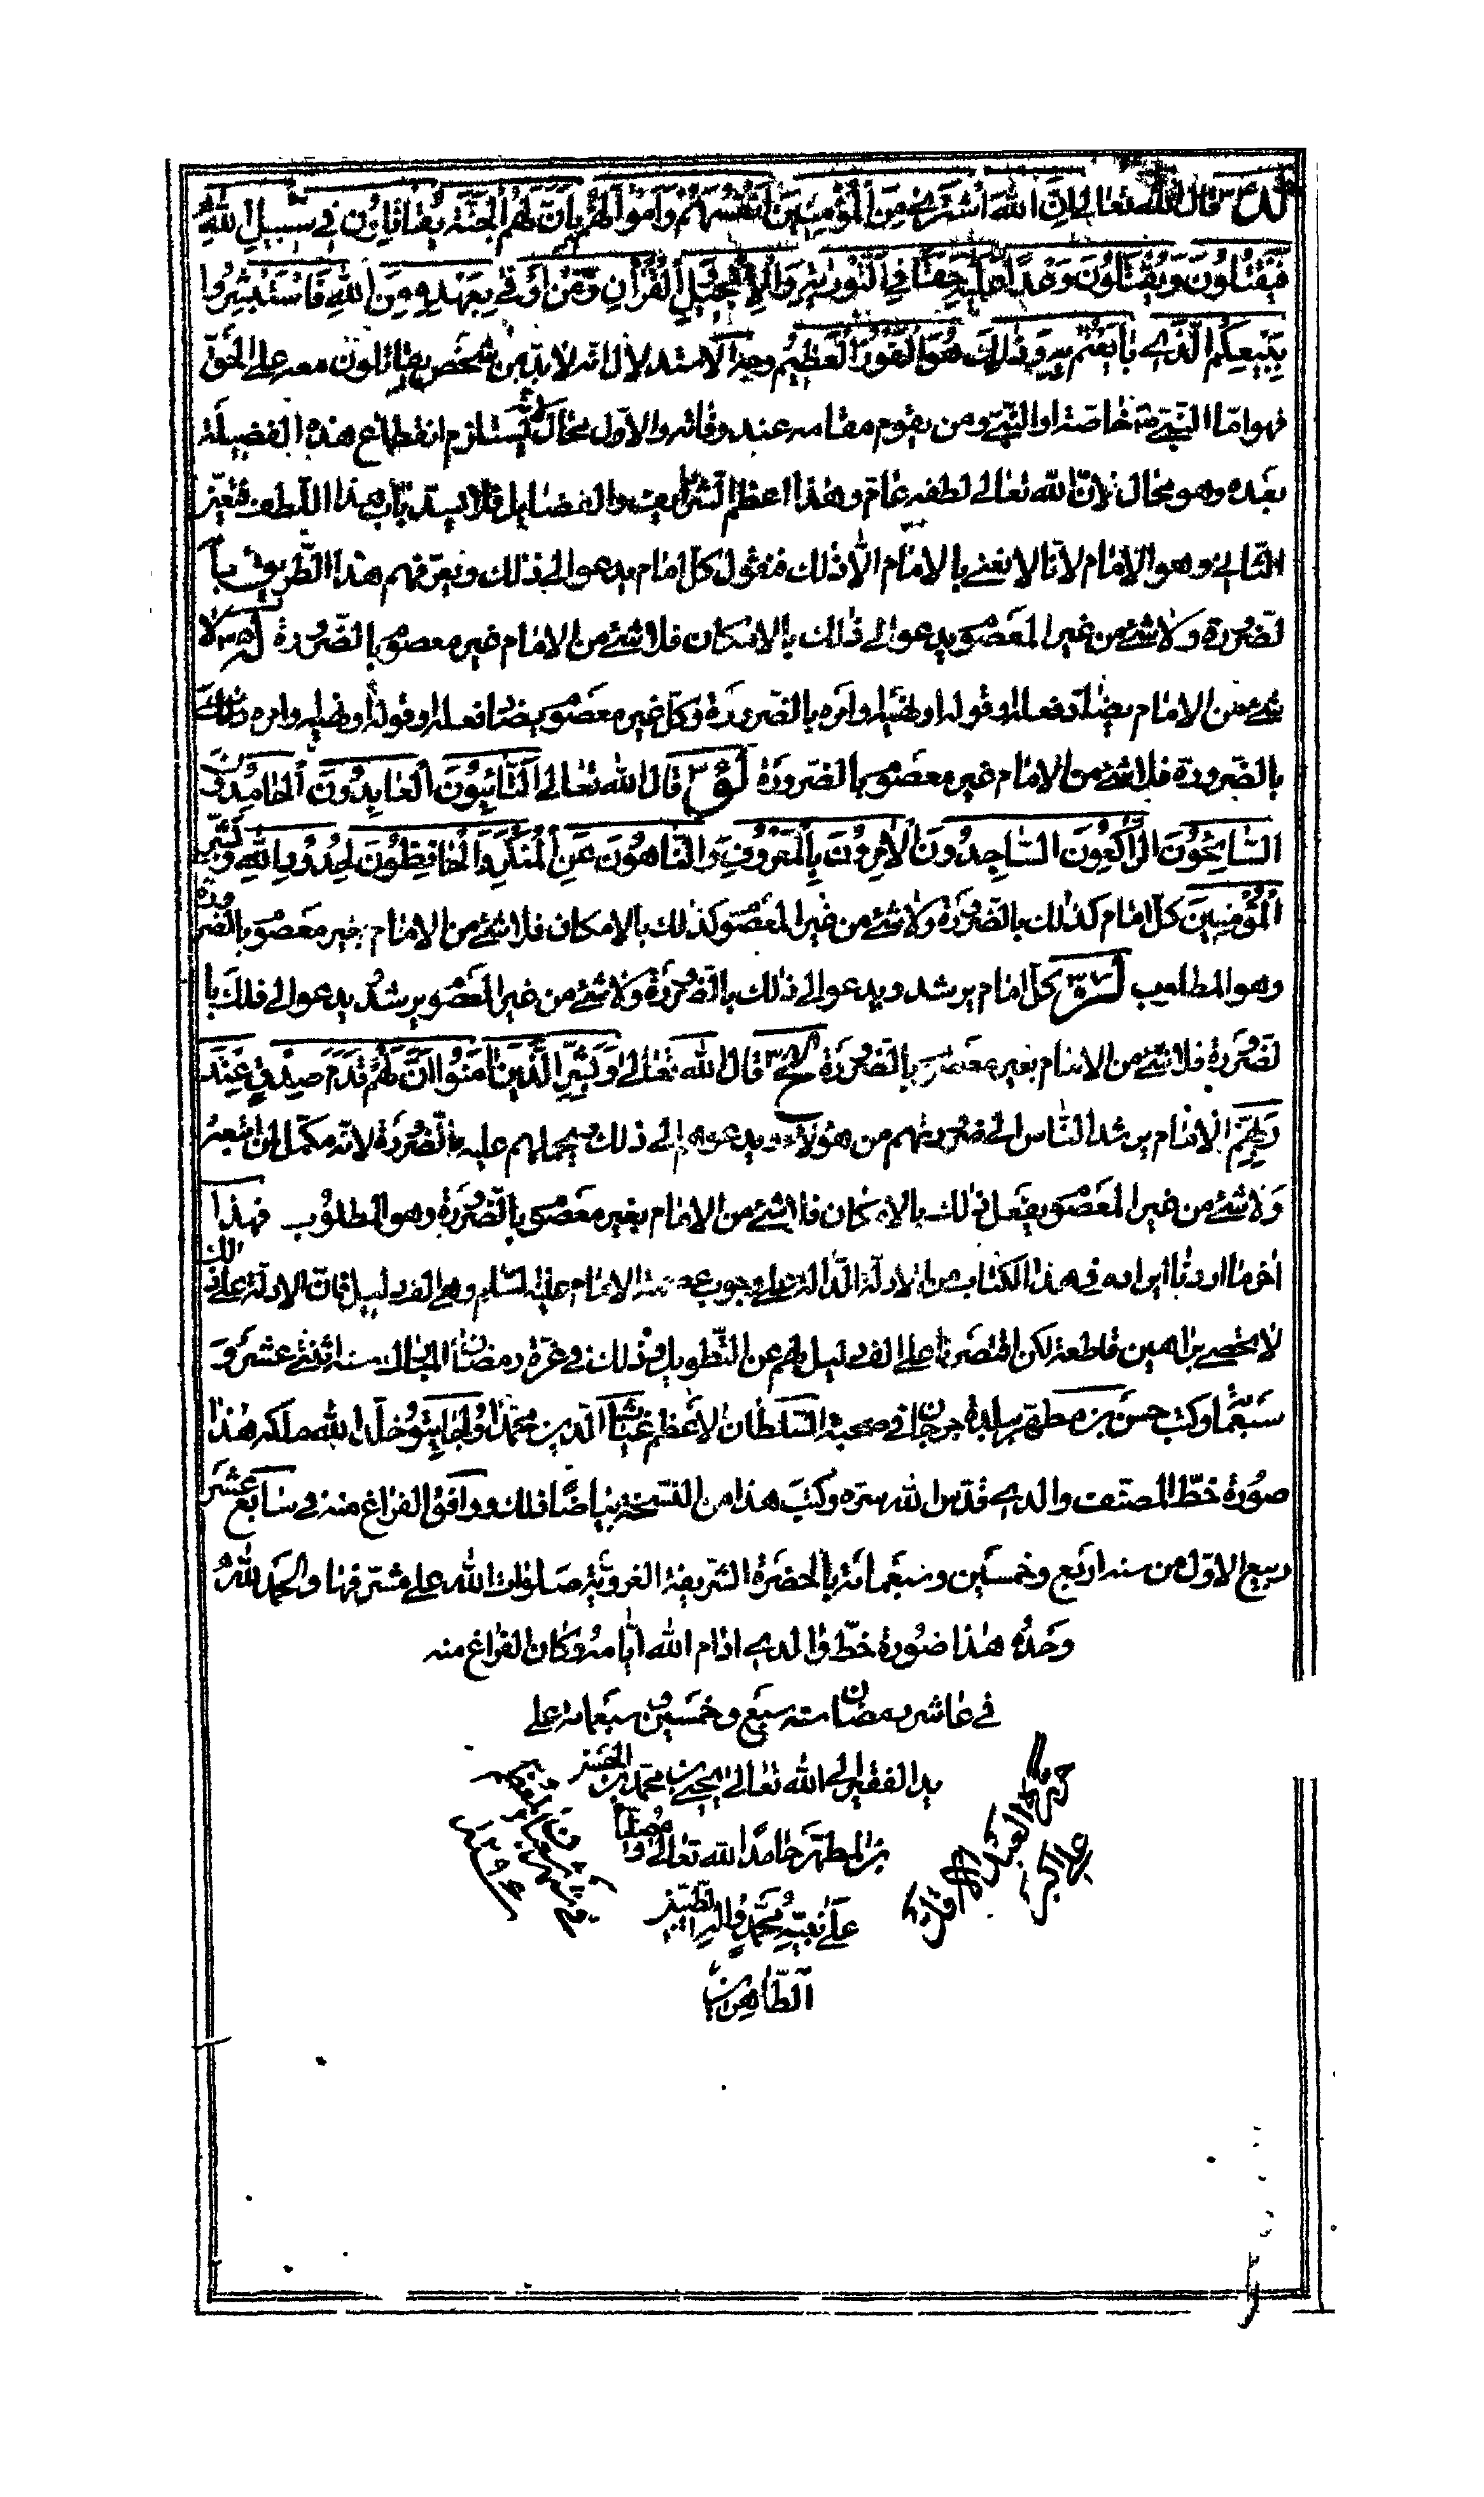 لد ٣٤ قال الله تعالى إِنَّ اللهَ اشْتَرىٰ مِنَ الْمُؤْمِنِينَ أَنْفُسَهُمْ وَأَمْوالَهُمْ بِأَنَّ لَهُمُ الْجَنَّةَ يُقاتِلُونَ فِي سَبِيلِ اللهِ
فَيَقْتُلُونَ وَيُقْتَلُونَ وَعْدًا عَلَيْهِ حَقًّا فِي التَّوْرٰيةِ وَالْإِنْجِيلِ الْقُرْآنِ وَمَنْ أَوْفىٰ بِعَهْدِهِ مِنَ اللهِ فَاسْتَبْشِرُوا
بِبَيْعِكُمُ الَّذِي بايَعْتُمْ بِهِ وَذٰلِكَ هُوَ الْفَوْزُ الْعَظِيمُ وجه الاستدلال انه لا بدّ من شخص يقاتلون معه على الحقّ
فهو امّا النّبيّ خاصّة او النّبيّ ومن يقوم مقامه عند وفاته والاوّل محال لانّه يستلزم انقطاع هذه الفضيلة
بعده وهو محال لانّ الله تعالى لطفه عامّ وهذا اعظم الشرايف والفضايل فلا يسدّ باب هذا اللّطف فتعيّن
الثاني وهو الامام لانّا لا نعني بالامام الّا ذلك فنقول كلّ امام يدعو الى ذلك ويعرّفهم هذا الطّريق با
لضّرورة ولا شئ من غير المعصوم يدعو الى ذلك بالامكان فلا شئ من الامام غير معصوم بالضّرورة له ٣٥ لا
شئ من الامام يضادّ فعله او قوله او نهيه او امره بالضّرورة وكلّ غير معصوم يضادّ فعله او قوله او نهيه او امره ذلك
بالضّرورة فلا شئ من الامام غير معصوم بالضّرورة لو ٣٦ قال الله تعالى اَلتّائِبُونَ الْعابِدُونَ الْحامِدُونَ
السّائِحُونَ الرّاكِعُونَ السّاجِدُونَ الْآمِرُونَ بِالْمَعْرُوفِ وَالنّاهُونَ عَنِ الْمُنْكَرِ وَالْحافِظُونَ لِحُدُودِ اللهِ وَبَشِّرِ
الْمُؤْمِنِينَ كلّ امام كذلك بالضّرورة ولا شئ من غير المعصوم كذلك بالامكان فلا شئ من الامام بغير معصوم بالضّرورة
وهو المطلوب لز ٣٧ كلّ امام يرشد ويدعو الى ذلك بالضّرورة ولا شئ من غير المعصوم يرشد يدعو الى ذلك با
لضّرورة فلا شئ من الامام بغير معصوم بالضّرورة لح ٣٨ قال الله تعالى وَبَشِّرِ الَّذِينَ آمَنُوا أَنَّ لَهُمْ قَدَمَ صِدْقٍ عِنْدَ
رَبِّهِمْ الامام يرشد النّاس الى صيرورتهم من هؤلاء ويدعوهم الى ذلك ويحملهم عليه بالضّرورة لانّه مكمّل لمن تبعه
ولا شئ من غير المعصوم يفعل ذلك بالامكان فلا شئ من الامام بغير معصوم بالضّرورة وهو المطلوب فهذا
آخر ما اردنا ايراده في هذا الكتاب من الادلة الدّالة على وجوب عصمة الامام عليه السّلام وهي الف دليل فانّ الادلّة على ذلك
لا تحصى براهين قاطعة لكن اقتصرنا على الف دليل عن التّطويل وذلك في غرّة رمضان المبارك سنة اثنتي عشر و
سبعمائة وكتب حسن بن مطهر ببلدة جرجان في صحبة السّلطان الاعظم غياث الدين محمّد اولجايتو خلّد الله ملكه هذا
صورة خطّ المصنّف والدي قدّس الله سرّه وكتب هذا من النسخة بياضًا ذلك ووافق الفراغ منه في سابع عشر
ربيع الاوّل من سنة اربع وخمسين وسبعمائة بالحضرة الشّريفة الغرويّة صلوات الله على مشرّفها والحمد لله
وحده هذا صورة خطّ والدي ادام الله ايّامه وكان الفراغ منه
في عاشر رمضان سنة سبع وخمسين وسبعمائة على
يد الفقير الى الله تعالى يحيى بن محمّد بن الحسن
بن المطهّر حامدًا لله تعالى ومصلّيا
على نبيّه محمّد واله الطّيّبين
الطّاهرين